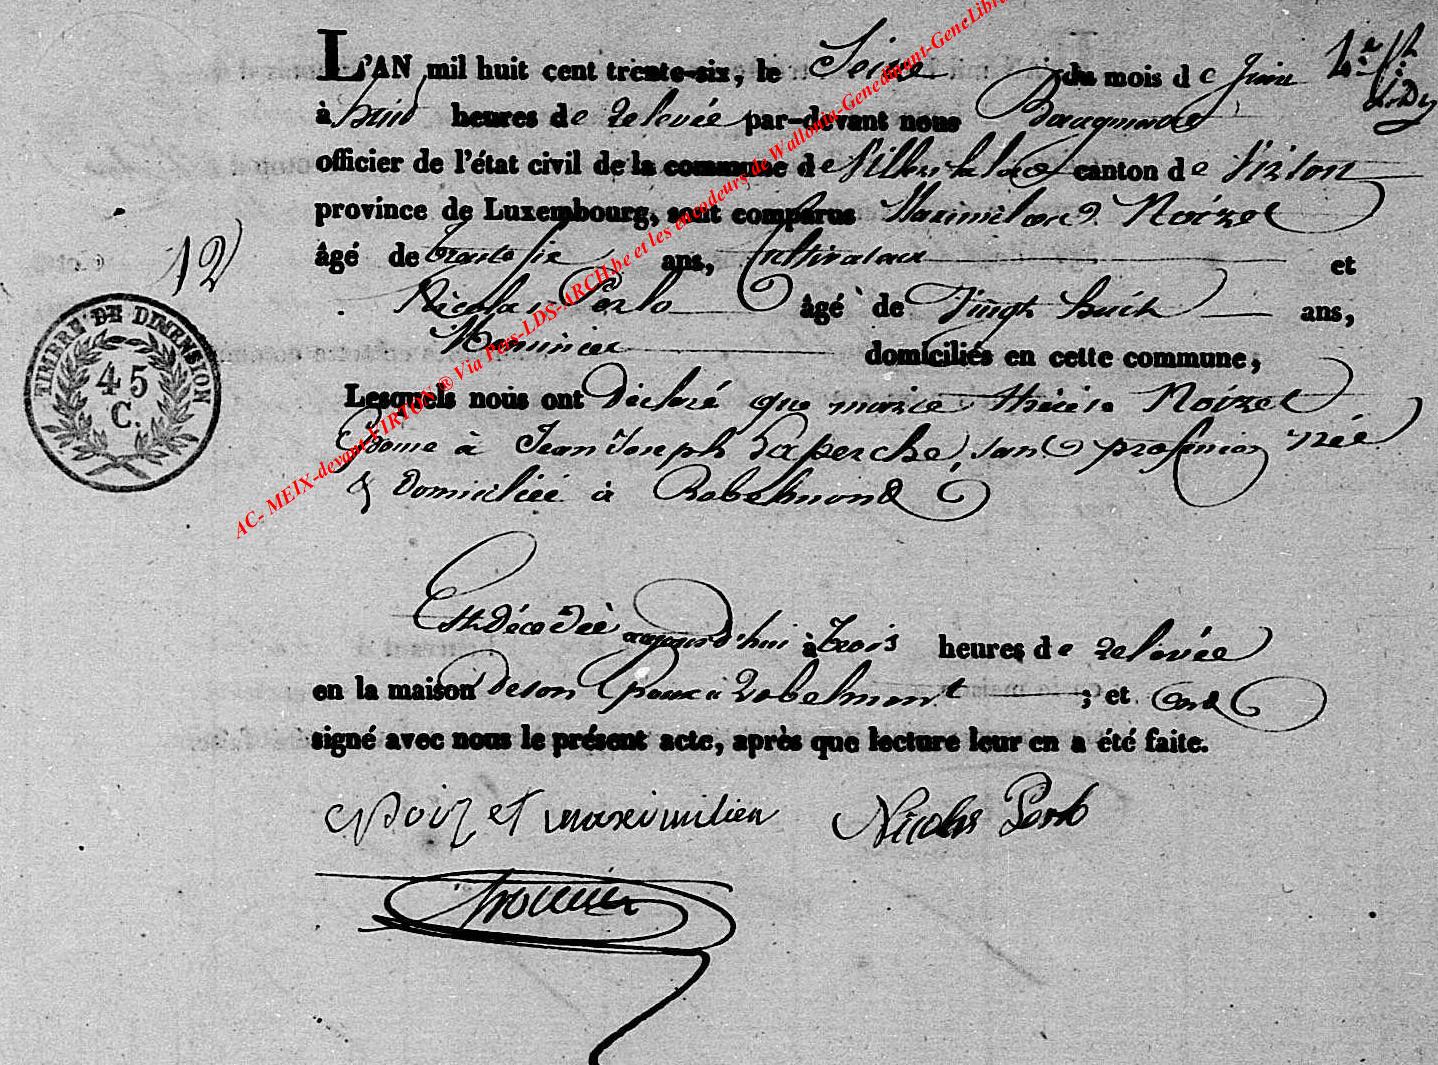 L'AN mil huit cent trente-six, le Seize du mois de Juin
à huit heures de relevée par-devant nous
officier de l'état civil de la commune de Villers la loue canton de Virton
province de Luxembourg, sont comparus Maximilien Noizet
âgé de trente six ans, Cultivateur et
Nicolas Perlo âgé de Vingt huit ans,
domiciliés en cette commune,
12
TIMBRE DE DIMENSION
45
C.
Lesquels nous ont déclaré que marie thérèse Noizet
Epouse à Jean Joseph Laperche, sans profession née
& Domiciliée à Robelmond
Est Décédée aujourd'hui à trois heures de relevée
en la maison de son Epoux à Robelmont ; et ont
signé avec nous le présent acte, après que lecture leur en a été faite.
Noizet maximilien Nicolas Perlo
AC- MEIX-devant-VIRTON ® Via Pers-LDS-ARCH.be et les encodeurs de Wallonia-Genedinant-GeneLibre